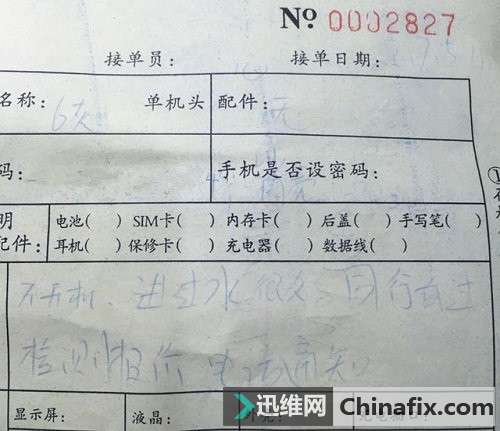 № 0002827
接单员: 接单日期:
名称: 6灰 单机头 配件: 无
码: 手机是否设密码:
明 电池( ) SIM卡( ) 内存卡( ) 后盖( ) 手写笔( )
配件: 耳机( ) 保修卡( ) 充电器( ) 数据线( )
不开机、进过水很久、同行看过
检测报价 电话通知
显示屏: 液晶:
迅维网 Chinafix.com